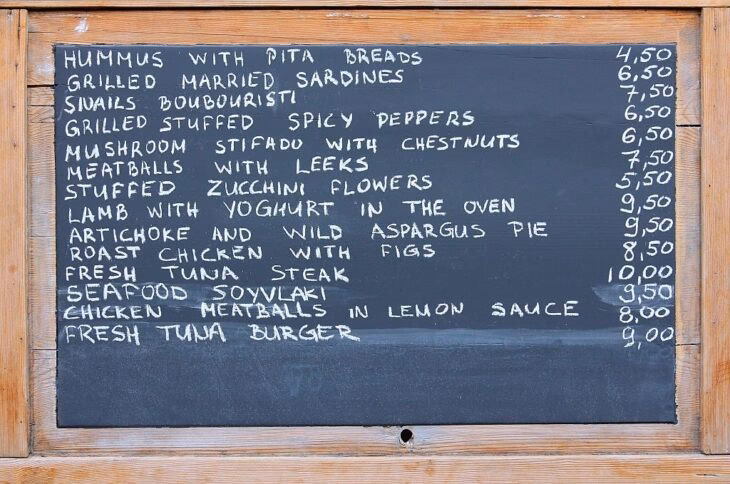 HUMMUS WITH PITA BREADS 4,50
GRILLED MARRIED SARDINES 6,50
SNAILS BOUBOURISTI 7,50
GRILLED STUFFED SPICY PEPPERS 6,50
MUSHROOM STIFADO WITH CHESTNUTS 6,50
MEATBALLS WITH LEEKS 7,50
STUFFED ZUCCHINI FLOWERS 5,50
LAMB WITH YOGHURT IN THE OVEN 9,50
ARTICHOKE AND WILD ASPARGUS PIE 9,50
ROAST CHICKEN WITH FIGS 8,50
FRESH TUNA STEAK 10,00
SEAFOOD SOYVLAKI 9,50
CHICKEN MEATBALLS IN LEMON SAUCE 8,00
FRESH TUNA BURGER 9,00